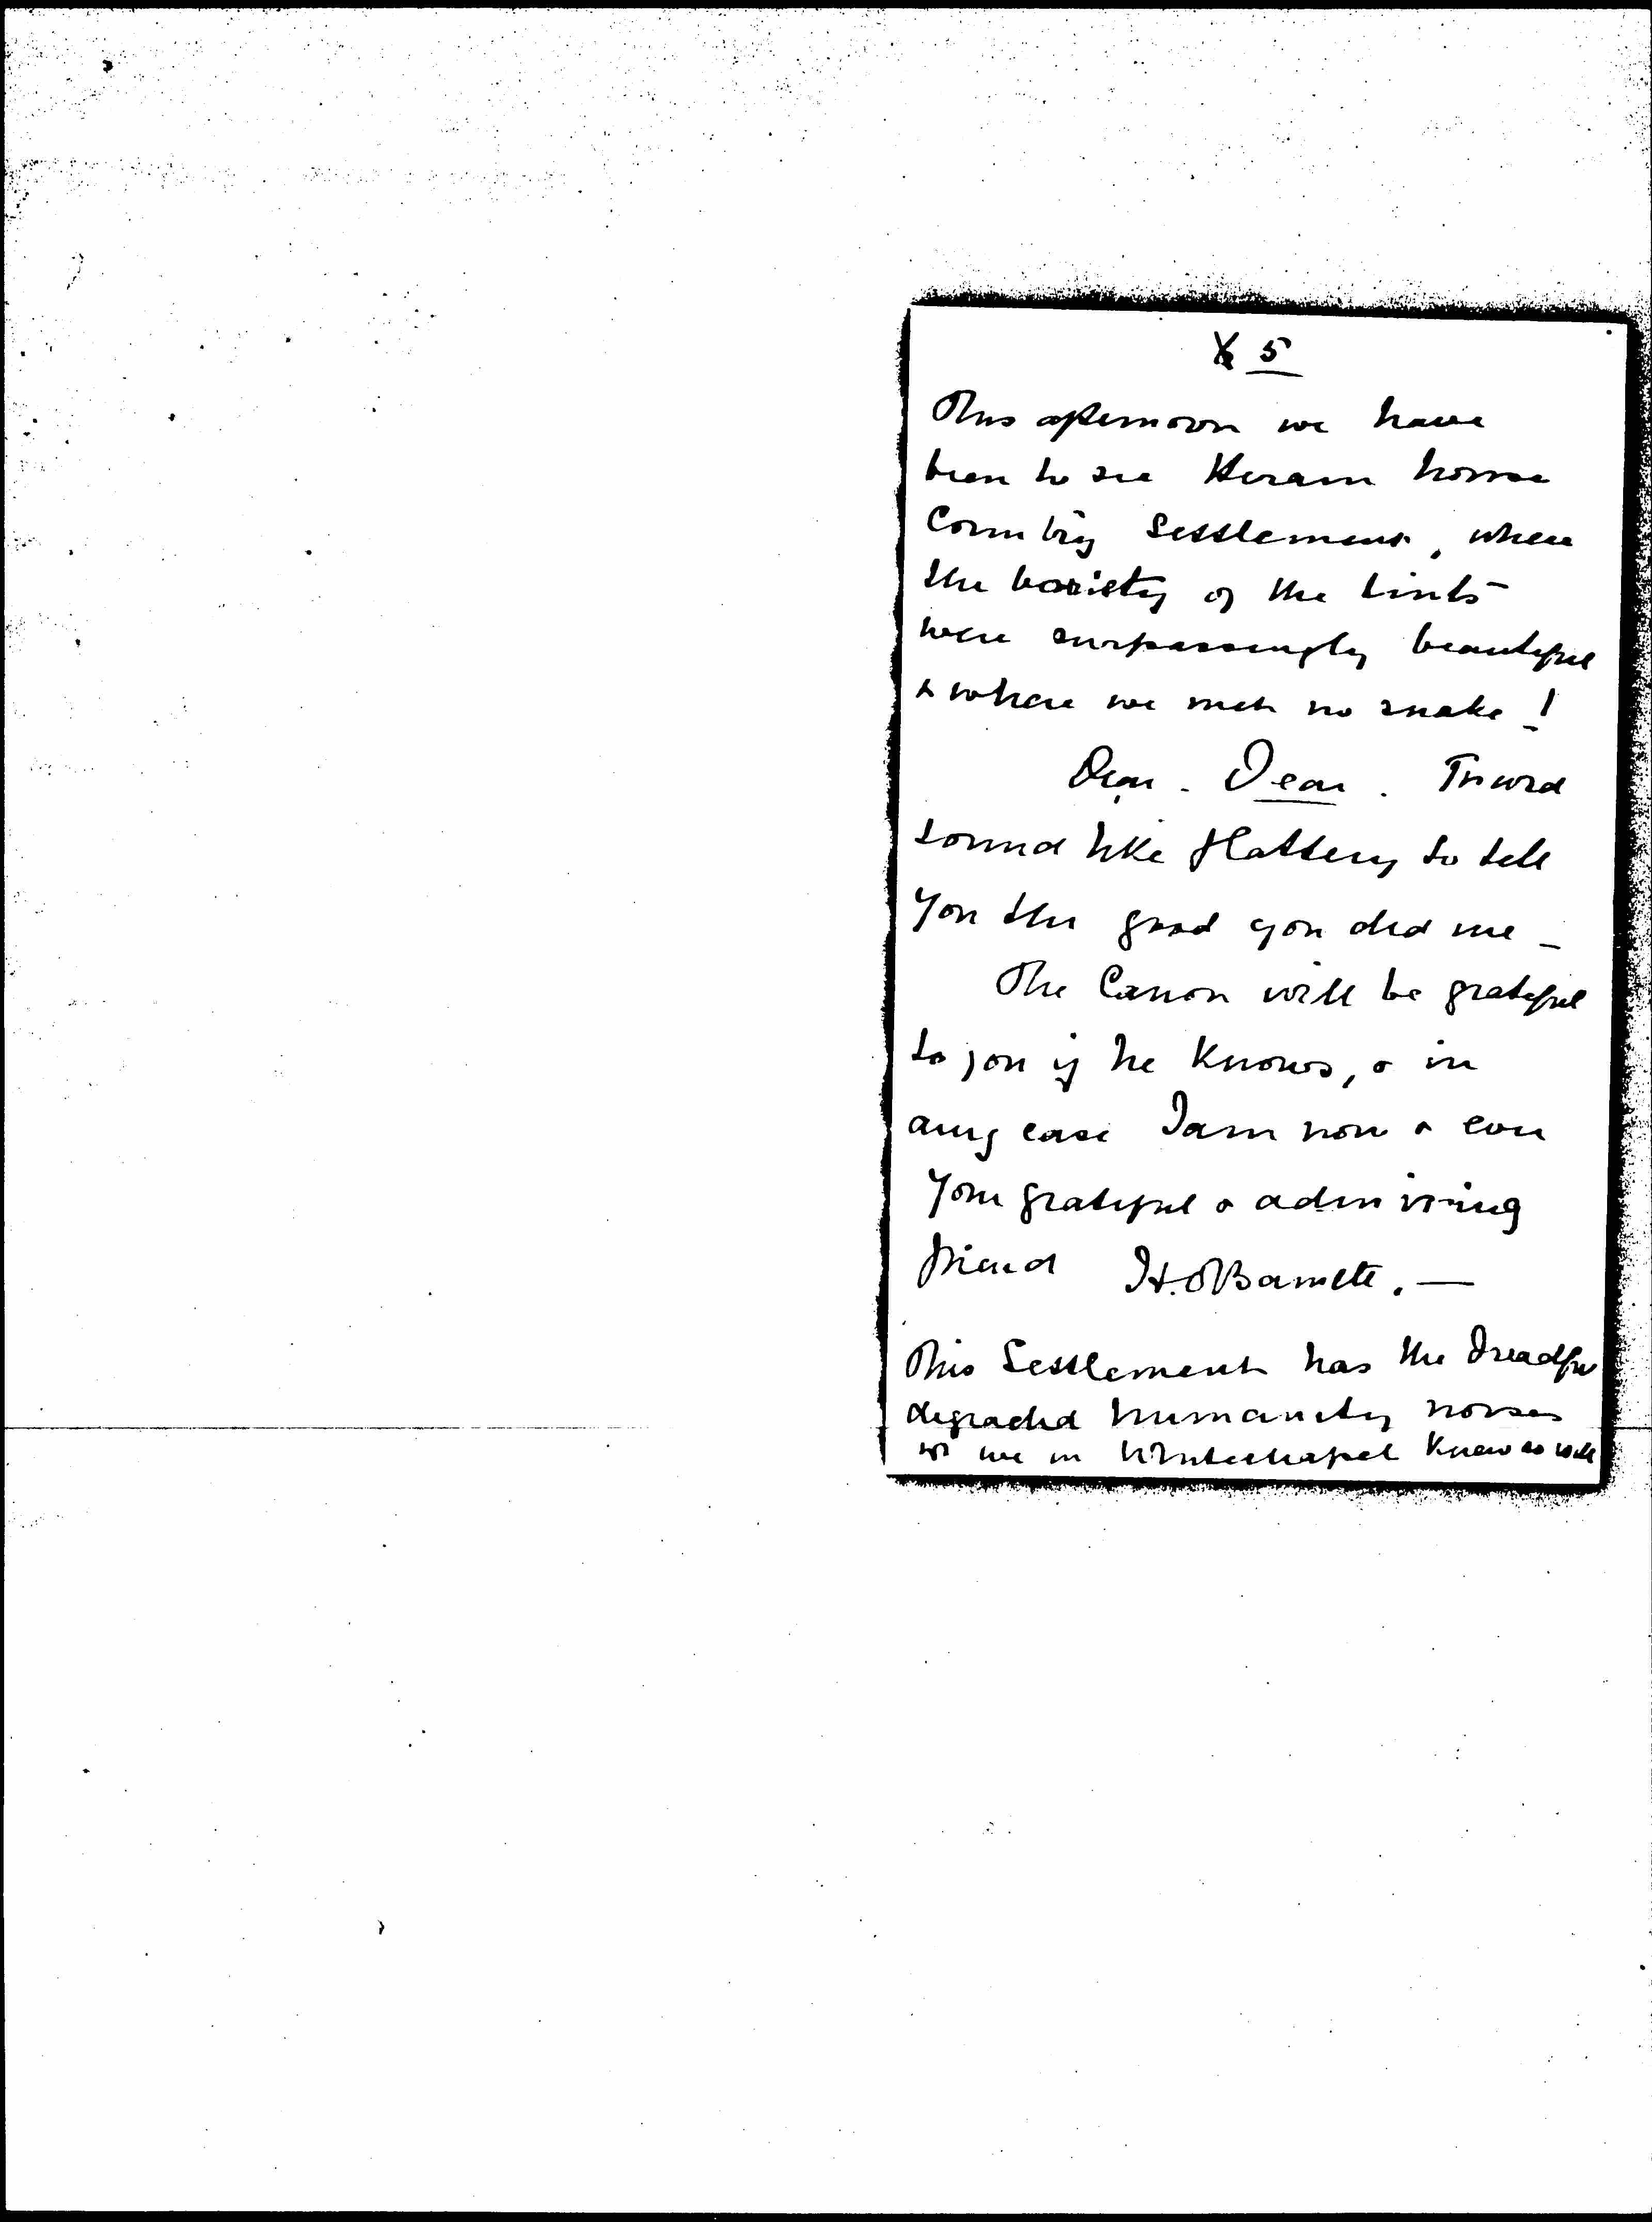 5
This afternoon we have
been to see Hiram house
Country Settlement, where
the variety of the tints
were surpassingly beautiful
& where we met no snake!
Dear - Dear.
sound like flattery to tell
you the good you did me -
The Canon will be grateful
to you if he knows, & in
any case I am now & ever
your grateful & admiring
friend H.O Barnett. —
This Settlement has the dreadful
degraded humanity noises
we in Whitechapel know so well